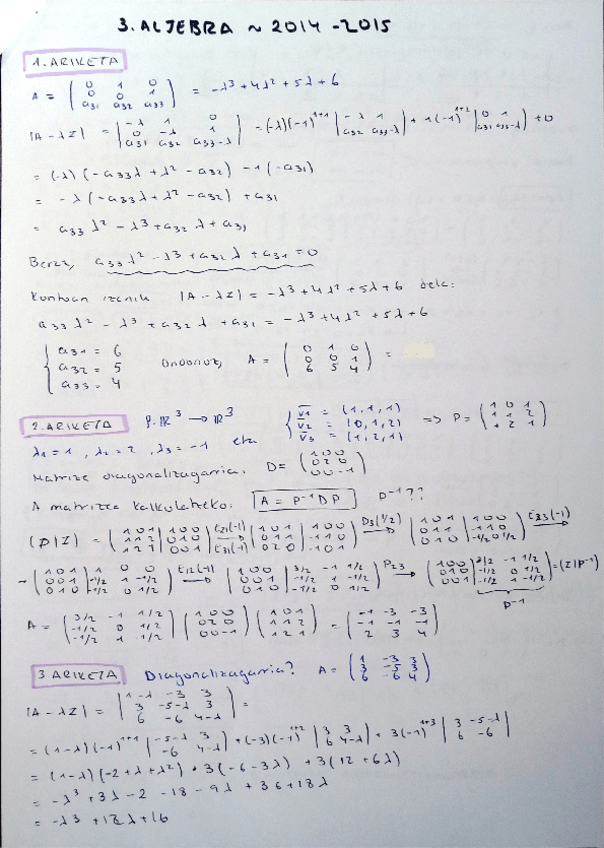 3. ALJEBRA ~ 2014-2015
1. ARIKETA
A = ( 0 1 0 / 0 0 1 / a31 a32 a33 ) = -λ³+4λ²+5λ+6
|A-λI| = | -λ 1 0 / 0 -λ 1 / a31 a32 a33-λ | = (-λ)(-1)¹⁺¹ | -λ 1 / a32 a33-λ | + 1(-1)¹⁺² | 0 1 / a31 a33-λ | + 0
= (-λ)(-a33λ+λ²-a32) -1(-a31)
= -λ(-a33λ+λ²-a32) + a31
= a33λ²-λ³+a32λ+a31
Beraz, a33λ²-λ³+a32λ+a31=0
Kontuan izanik |A-λI| = -λ³+4λ²+5λ+6 dela:
a33λ²-λ³+a32λ+a31 = -λ³+4λ²+5λ+6
{ a31 = 6
a32 = 5 Ondorioz, A = ( 0 1 0 / 0 0 1 / 6 5 4 ) =
a33 = 4
2. ARIKETA f: ℝ³ → ℝ³ { v1 = (1,1,1) / v2 = (0,1,2) / v3 = (1,2,1) => P = ( 1 0 1 / 1 1 2 / 1 2 1 )
λ1=1, λ2=2, λ3=-1 eta
Matrize diagonalizagarria. D = ( 1 0 0 / 0 2 0 / 0 0 -1 )
A matrizea kalkulatzeko: A = P⁻¹DP P⁻¹??
(P|I) = ( 1 0 1 | 1 0 0 / 1 1 2 | 0 1 0 / 1 2 1 | 0 0 1 ) E21(-1) E31(-1) → ( 1 0 1 | 1 0 0 / 0 1 1 | -1 1 0 / 0 2 0 | -1 0 1 ) D3(1/2) → ( 1 0 1 | 1 0 0 / 0 1 1 | -1 1 0 / 0 1 0 | -1/2 0 1/2 ) E23(-1) →
→ ( 1 0 1 | 1 0 0 / 0 0 1 | -1/2 1 -1/2 / 0 1 0 | -1/2 0 1/2 ) E12(-1) → ( 1 0 0 | 3/2 -1 1/2 / 0 0 1 | -1/2 1 -1/2 / 0 1 0 | -1/2 0 1/2 ) P23 → ( 1 0 0 | 3/2 -1 1/2 / 0 1 0 | -1/2 0 1/2 / 0 0 1 | -1/2 1 -1/2 ) = (I|P⁻¹)
P⁻¹
A = ( 3/2 -1 1/2 / -1/2 0 1/2 / -1/2 1 -1/2 ) ( 1 0 0 / 0 2 0 / 0 0 -1 ) ( 1 0 1 / 1 1 2 / 1 2 1 ) = ( -1 -3 -3 / -1 -1 -1 / 2 3 4 )
3 ARIKETA Diagonalizagarria? A = ( 1 -3 3 / 3 -5 3 / 6 -6 4 )
|A-λI| = | 1-λ -3 3 / 3 -5-λ 3 / 6 -6 4-λ | =
= (1-λ)(-1)¹⁺¹ | -5-λ 3 / -6 4-λ | + (-3)(-1)¹⁺² | 3 3 / 6 4-λ | + 3(-1)¹⁺³ | 3 -5-λ / 6 -6 |
= (1-λ)(-2+λ+λ²) + 3(-6-3λ) + 3(12+6λ)
= -λ³+3λ-2 -18-9λ +36+18λ
= -λ³+12λ+16